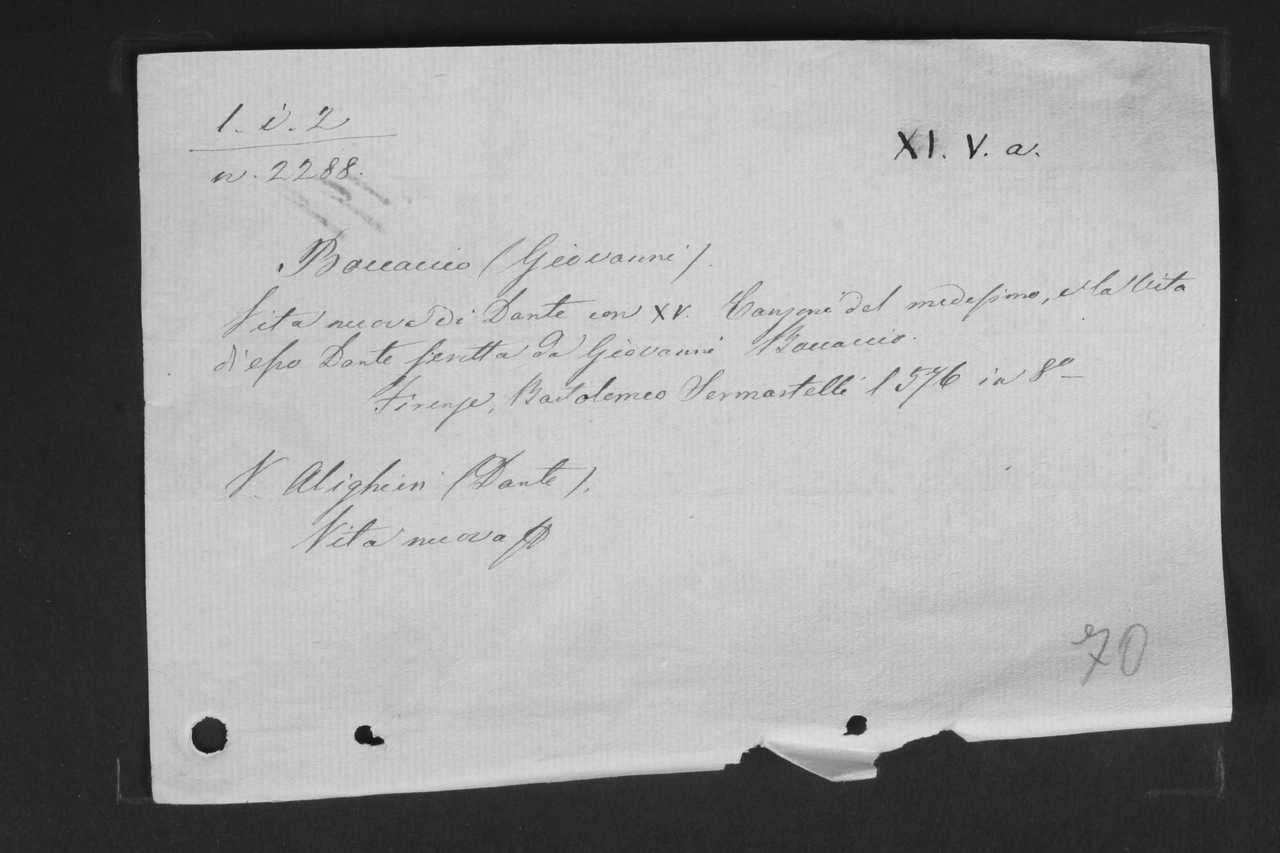 1. i. 2
n. 2288.
XI. V. a.
Boccaccio (Giovanni).
Vita nuova di Dante con XV. Canzoni del medesimo, e la Vita
di esso Dante scritta da Giovanni Boccaccio.
Firenze, Bartolomeo Sermartelli 1576 in 8º
V. Alighieri (Dante).
Vita nuova
70